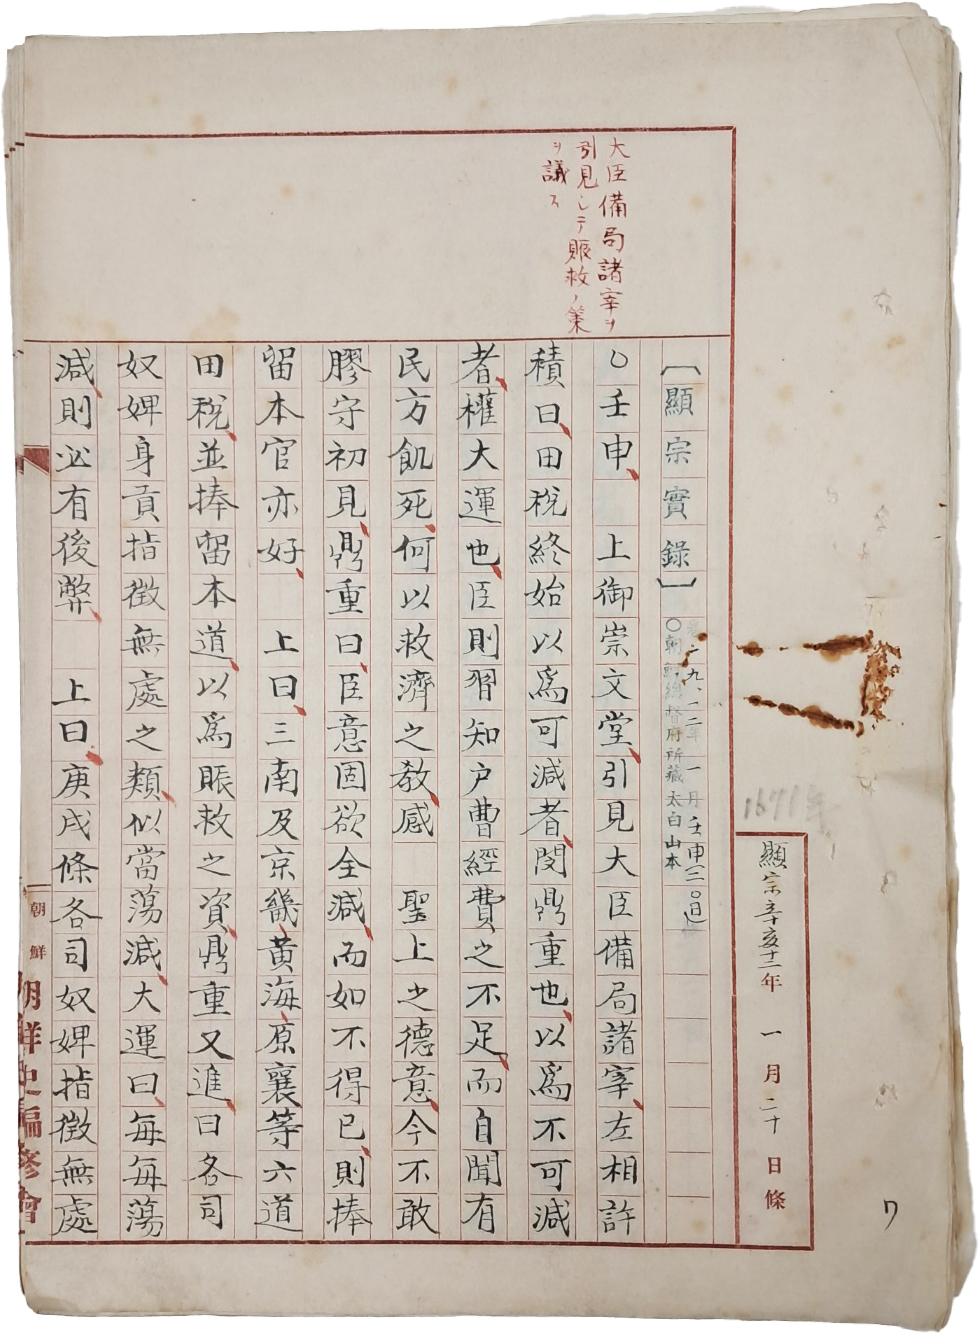 大臣備局諸宰ヲ
引見シテ賑救ノ策
ヲ議ス
1671年
顯宗辛亥十二年 一月二十日條
【顯宗實錄】
卷二九、一二年一月壬申(三〇日)
〇朝鮮總督府所藏太白山本
〇壬申、 上御崇文堂、引見大臣備局諸宰、左相許
積曰、田稅終始以爲可減者、閔鼎重也、以爲不可減
者、權大運也、臣則習知户曹經費之不足、而自聞有
民方飢死、何以救濟之敎、感 聖上之德意、今不敢
膠守初見、鼎重曰、臣意固欲全減、而如不得已、則捧
留本官亦好、 上曰、三南及京畿黃海、原襄等六道
田稅、並捧留本道、以爲賑救之資、鼎重又進曰各司
奴婢身貢指徵無處之類、似當蕩減、大運曰、每每蕩
減、則必有後弊、 上曰、庚戌條各司奴婢指徵無處
朝鮮
朝鮮史編修會
7